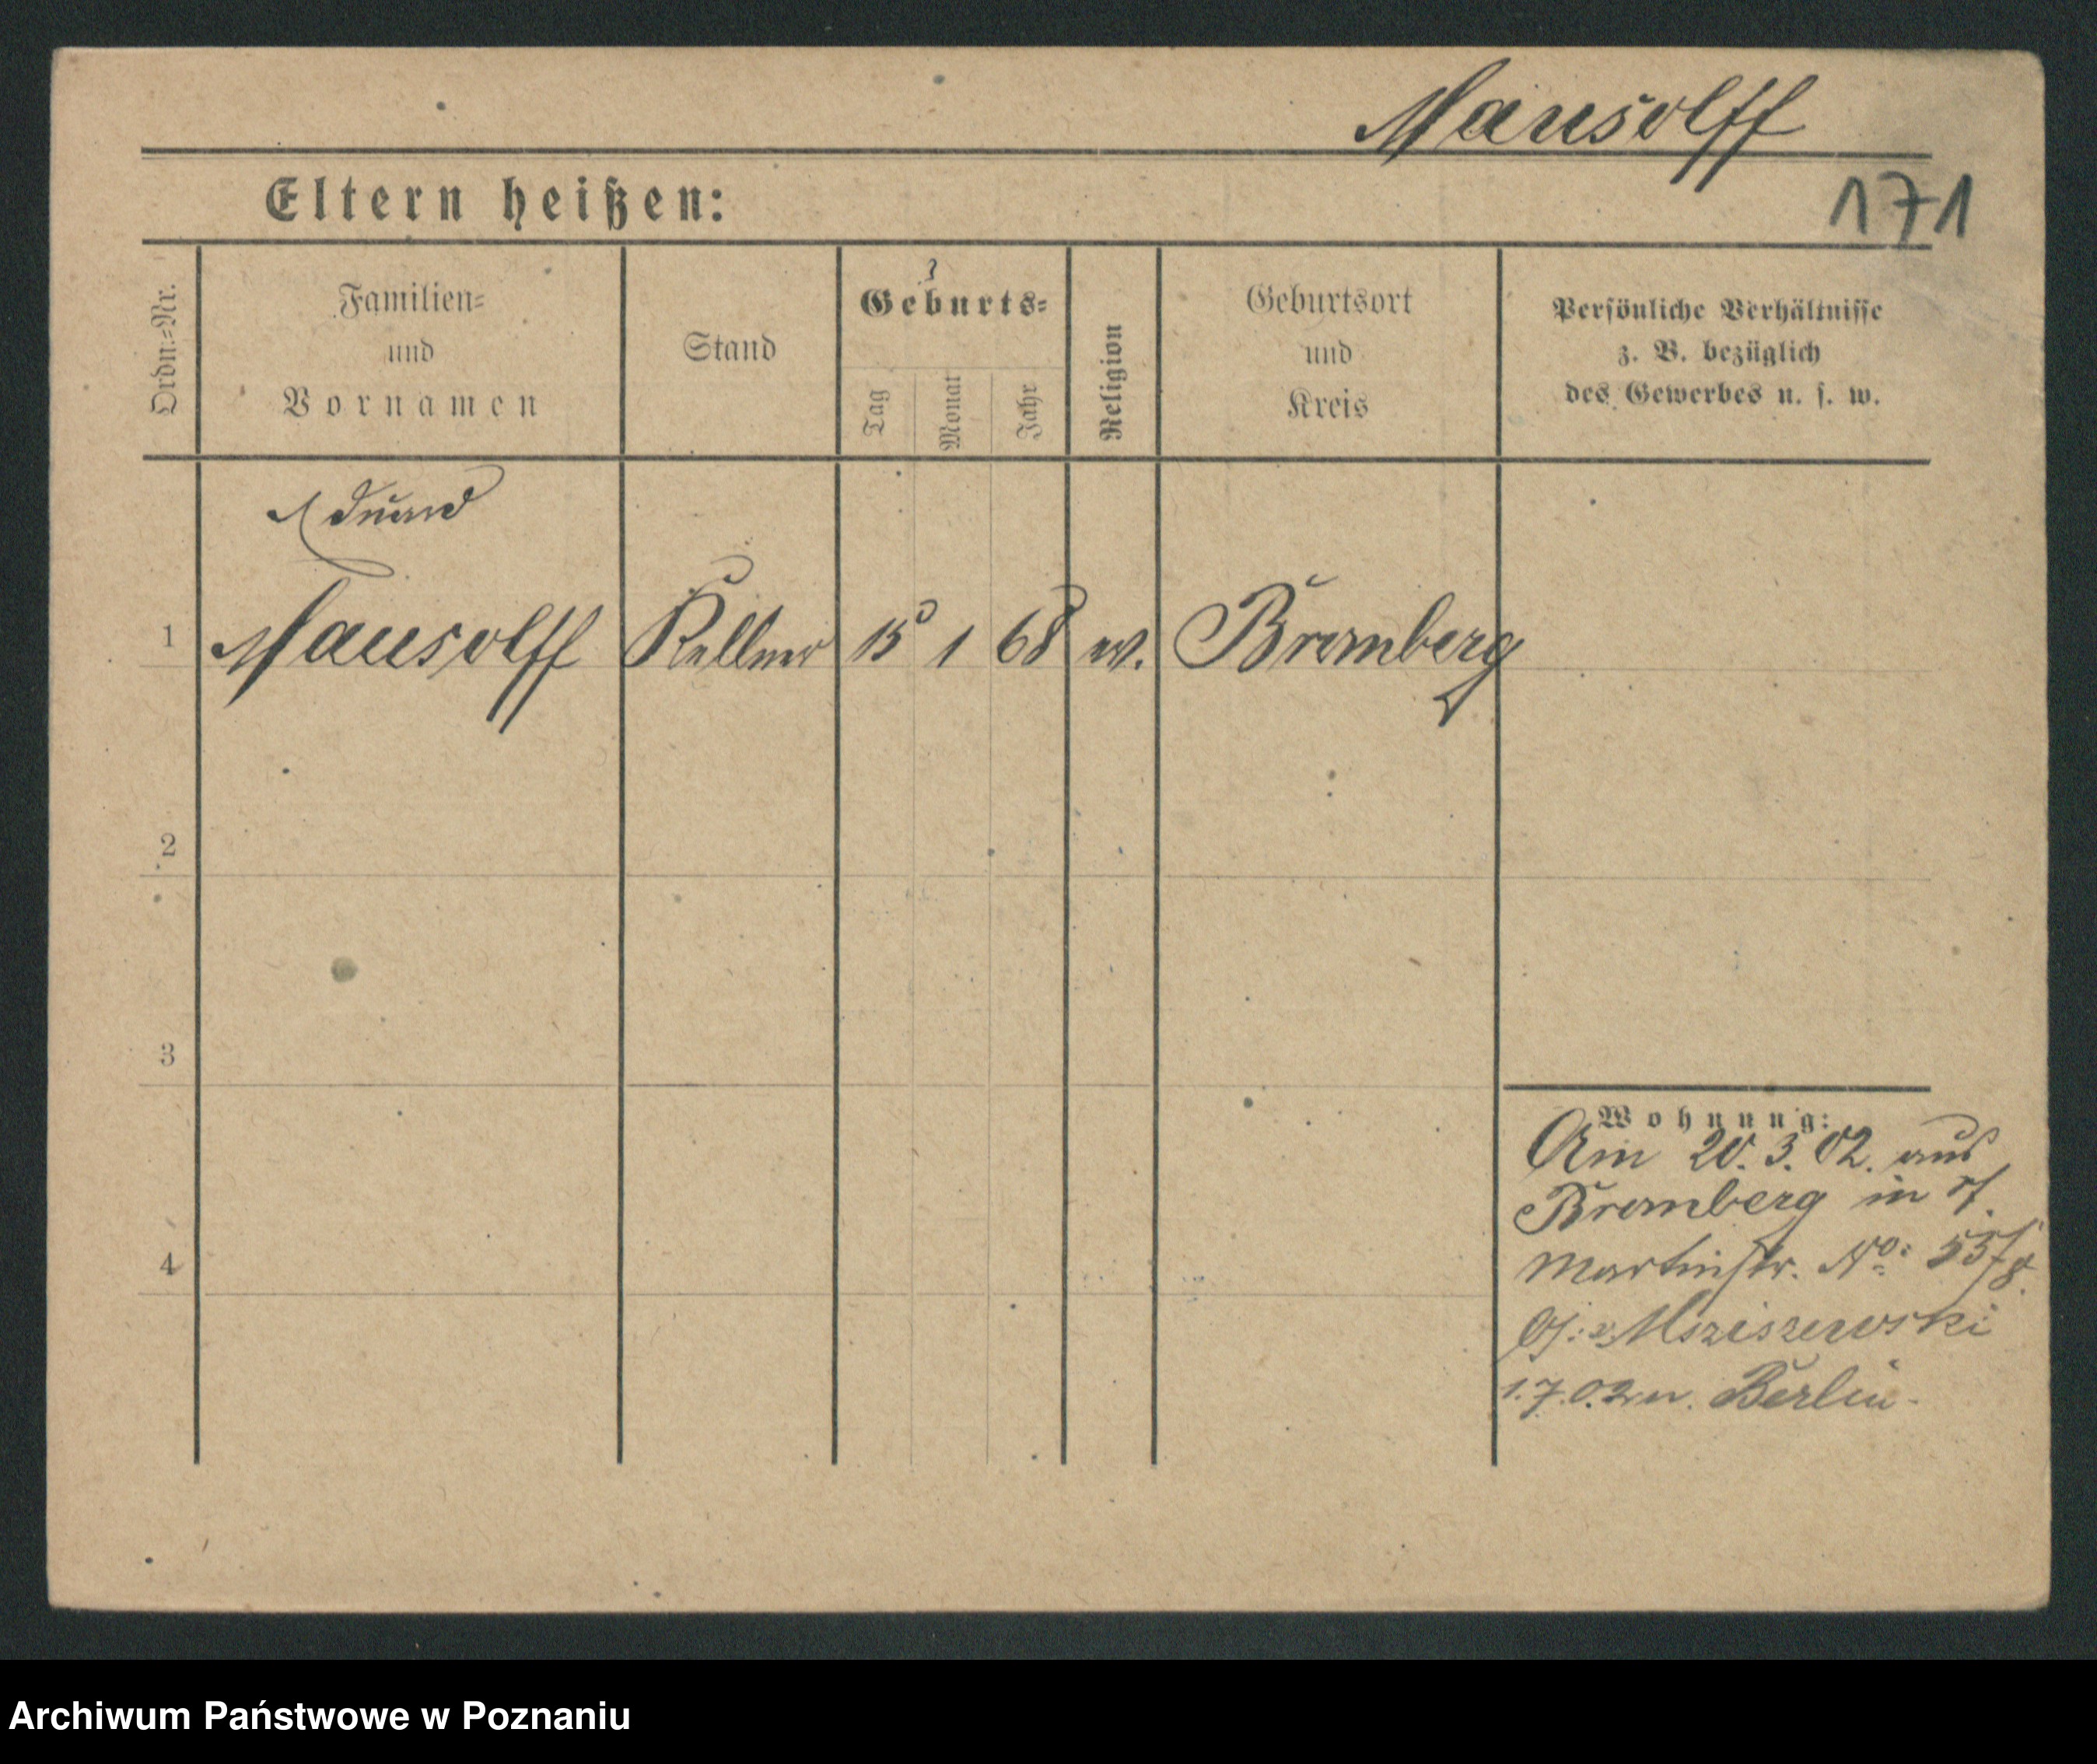 Mausolff
171
Eltern heißen:
Ordn.=Nr.
Familien=
und
Vornamen
Stand
Geburts=
Tag
Monat
Jahr
Religion
Geburtsort
und
Kreis
Persönliche Verhältnisse
z. B. bezüglich
des Gewerbes u. s. w.
Eduard
1 Mausolff Kellner 15 1 68 ev. Bromberg
2
3
4
Wohnung:
Am 20. 3. 02. aus
Bromberg in
Martinstr. No:
Msziszewski
1.7.02 n. Berlin.
Archiwum Państwowe w Poznaniu